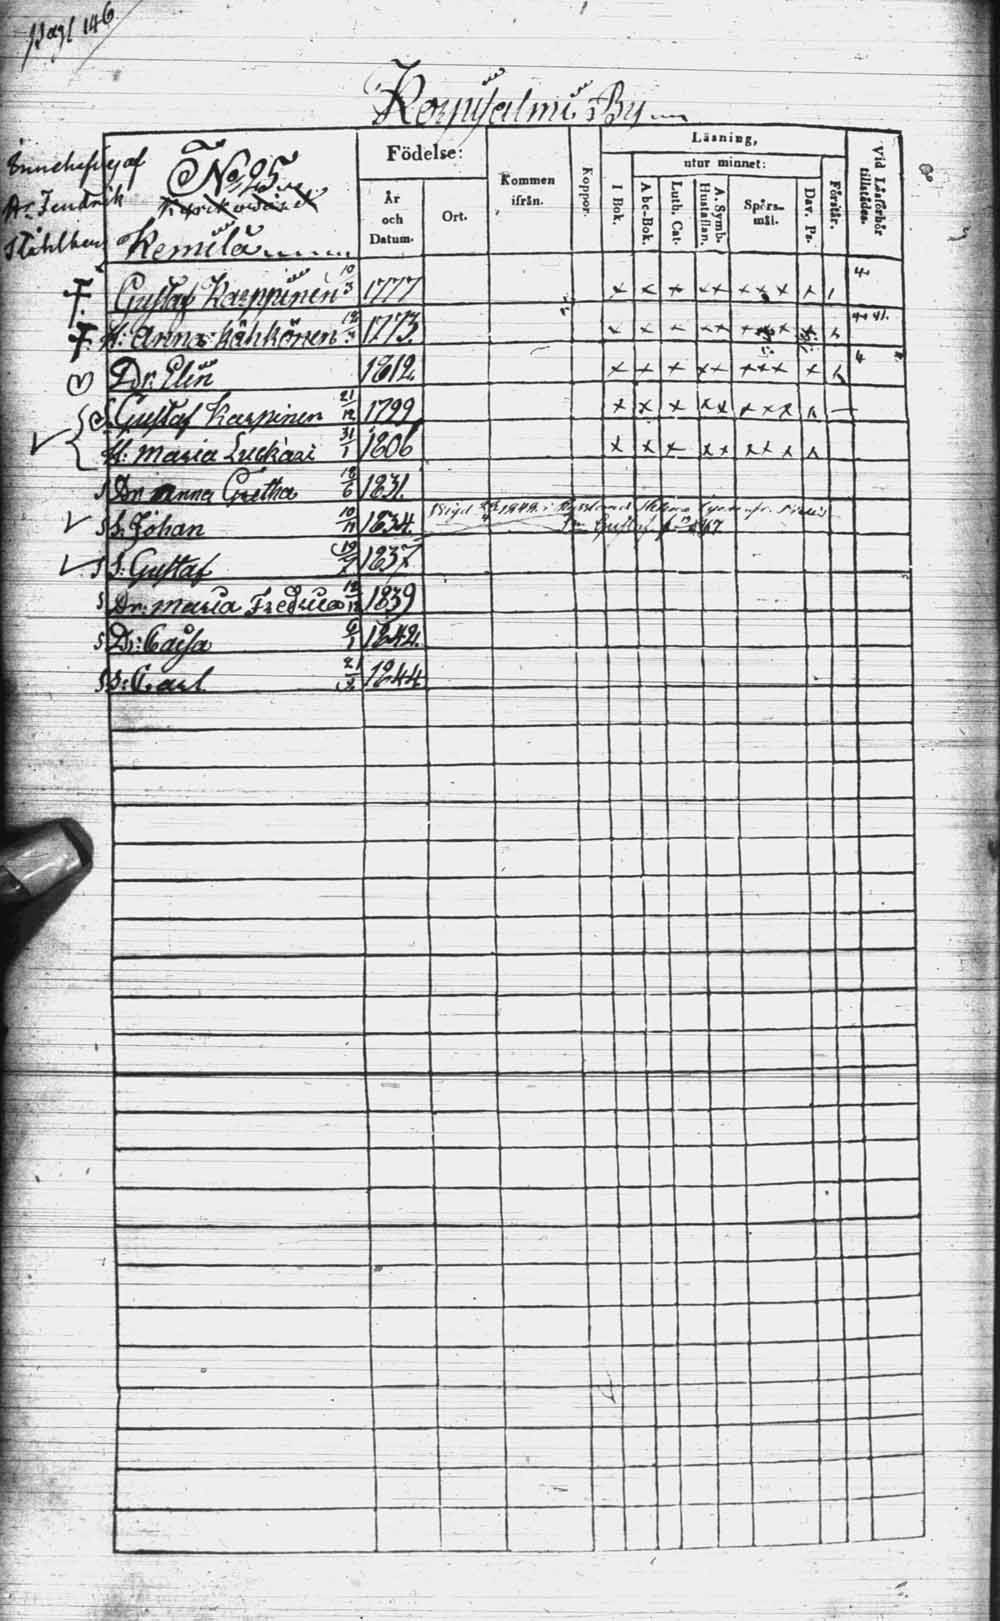 Pag: 146
Korpisalmi By
af
Hr. Fendrik
Ståhlberg
No 25
Kemilä
Födelse:
År
och
Datum.
Ort.
Kommen
ifrån.
Koppor.
Läsning,
utur minnet:
I Bok.
Abc-Bok.
Luth. Cat.
A. Symb.
Hustaflan.
Spörs-
mål.
Dav. Ps.
Förstår.
Vid Läsförhör
tillstädes.
Gustaf Karppinen 10/3 1777 x x x x x x x x x 4
H: Anna Kähkönen 1773. x x x x x x x 41.
Dr: Elin 1812. x x x x x x x x x 4
S: Gustaf Karpinen 21/12 1799 x x x x x x x x
H: Maria Luckari 31/1 1806 x x x x x x x x
Dr: Anna Gretha 18/6 1831.
S: Johan 10/11 1834.
S: Gustaf 1837
Dr: Maria Fredrica 1839
Dr: Caisa 9/1 1842.
S: Carl 1844